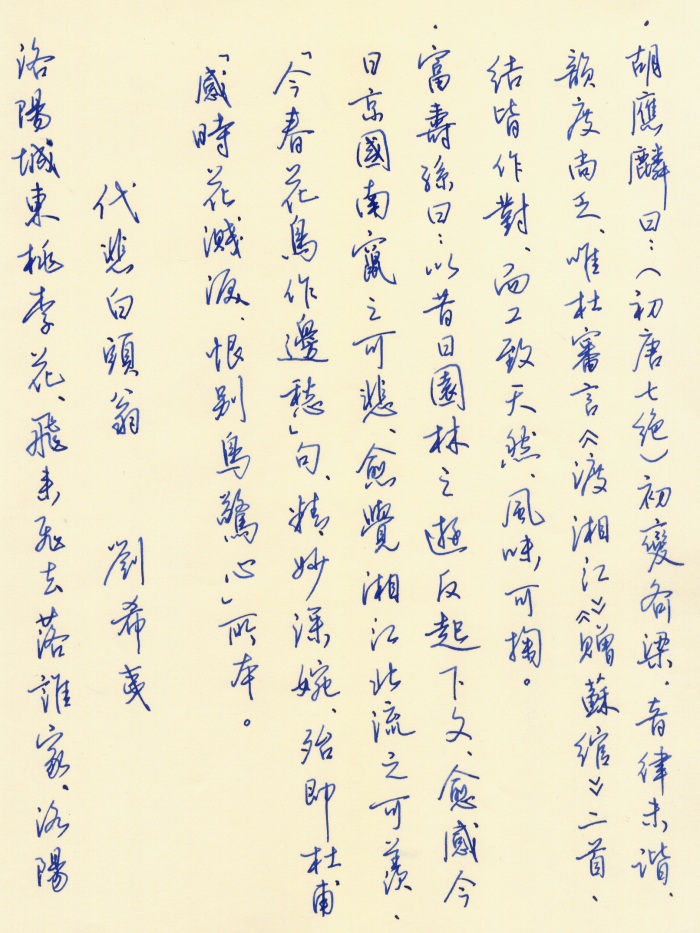 ·胡應麟曰：（初唐七絕）初變齊梁、音律未諧、
韻度尚乏、唯杜審言《渡湘江》《贈蘇綰》二首、
結皆作對、而工致天然、風味可掬。
·富壽蓀曰：以昔日園林之遊反起下文、愈感今
日京國南竄之可悲、愈覺湘江北流之可羨、
「今春花鳥作邊愁」句、精妙深婉、殆即杜甫
「感時花濺淚、恨別鳥驚心」所本。
代悲白頭翁 劉希夷
洛陽城東桃李花、飛來飛去落誰家、洛陽